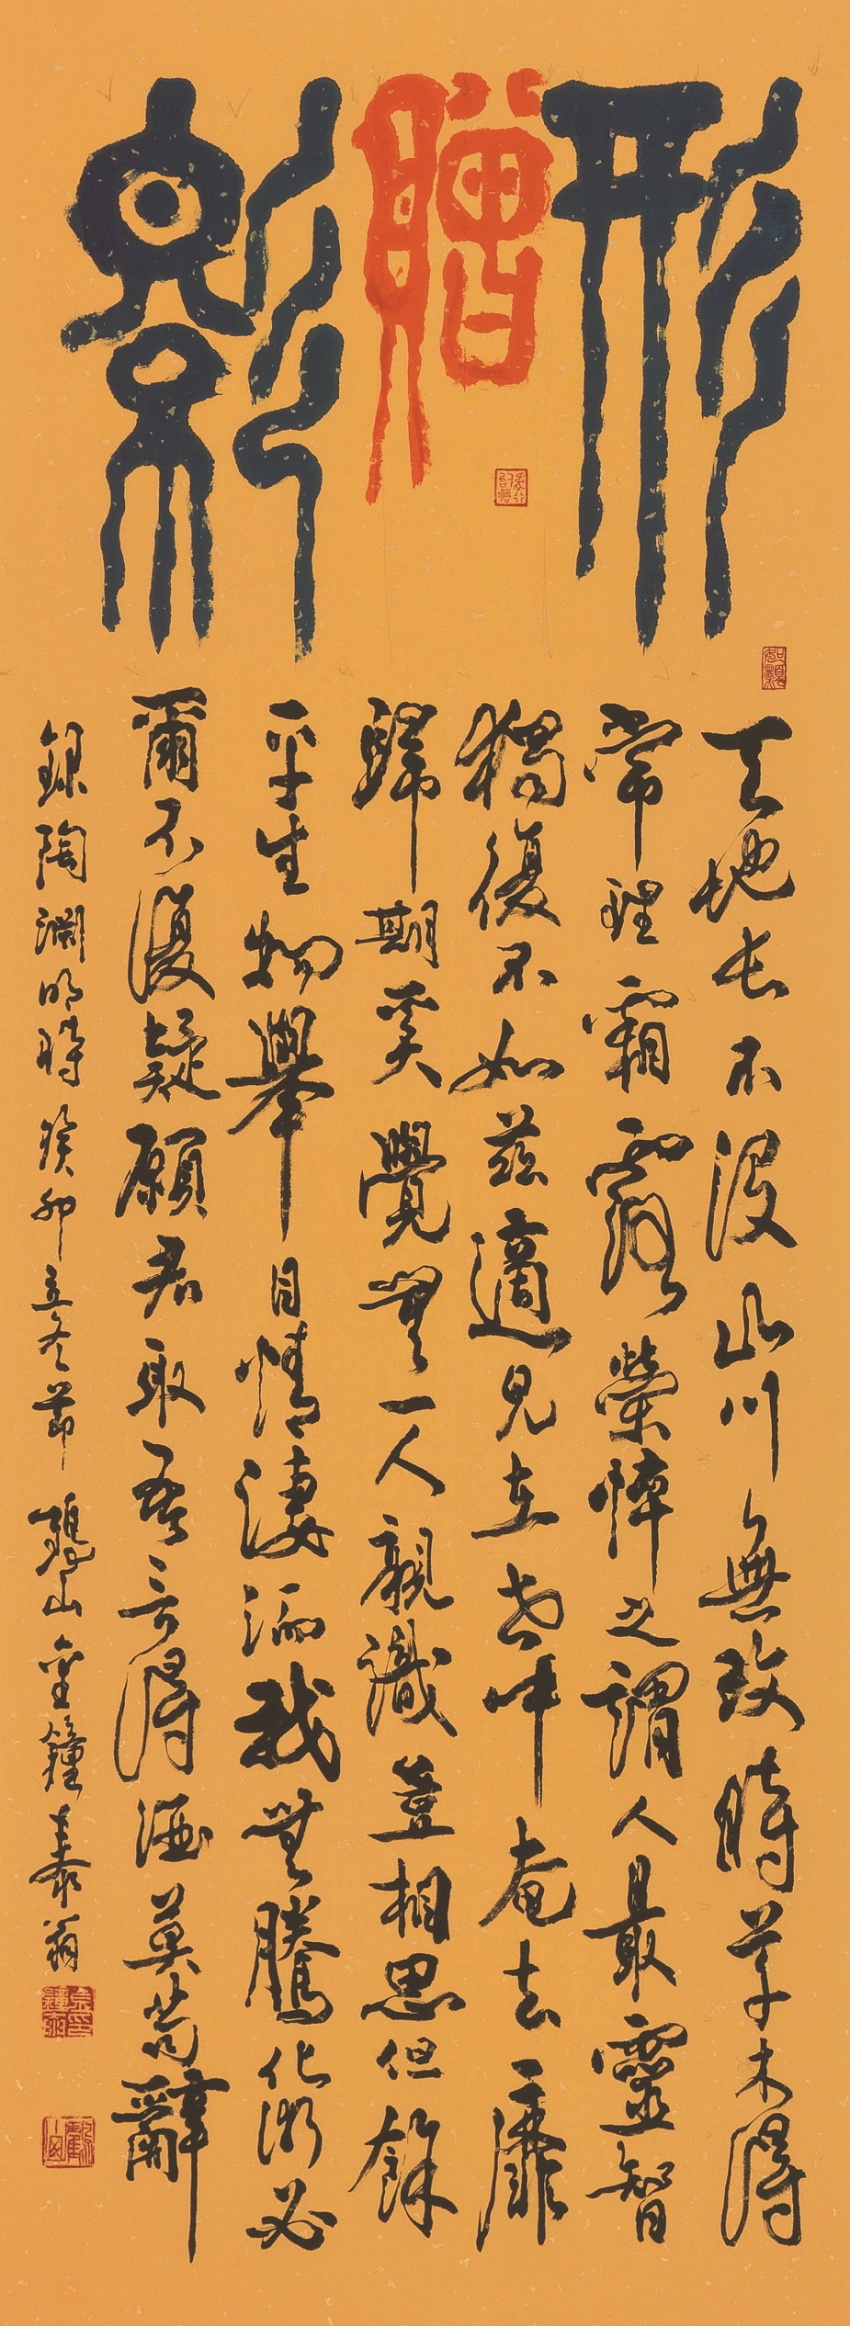 形贈影
天地長不沒山川無改時草木得
常理霜露榮悴之謂人最靈智
獨復不如茲適見在世中奄去靡
歸期奚覺無一人親識豈相思但餘
平生物擧目情淒洏我無騰化術必
爾不復疑願君取吾言得酒莫苟辭
錄陶淵明詩癸卯立冬節山金鐘泰翁